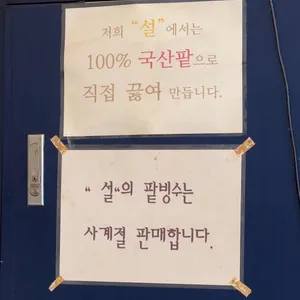 저희 "설"에서는
100% 국산팥으로
직접 끓여 만듭니다.
" 설"의 팥빙수는
사계절 판매합니다.